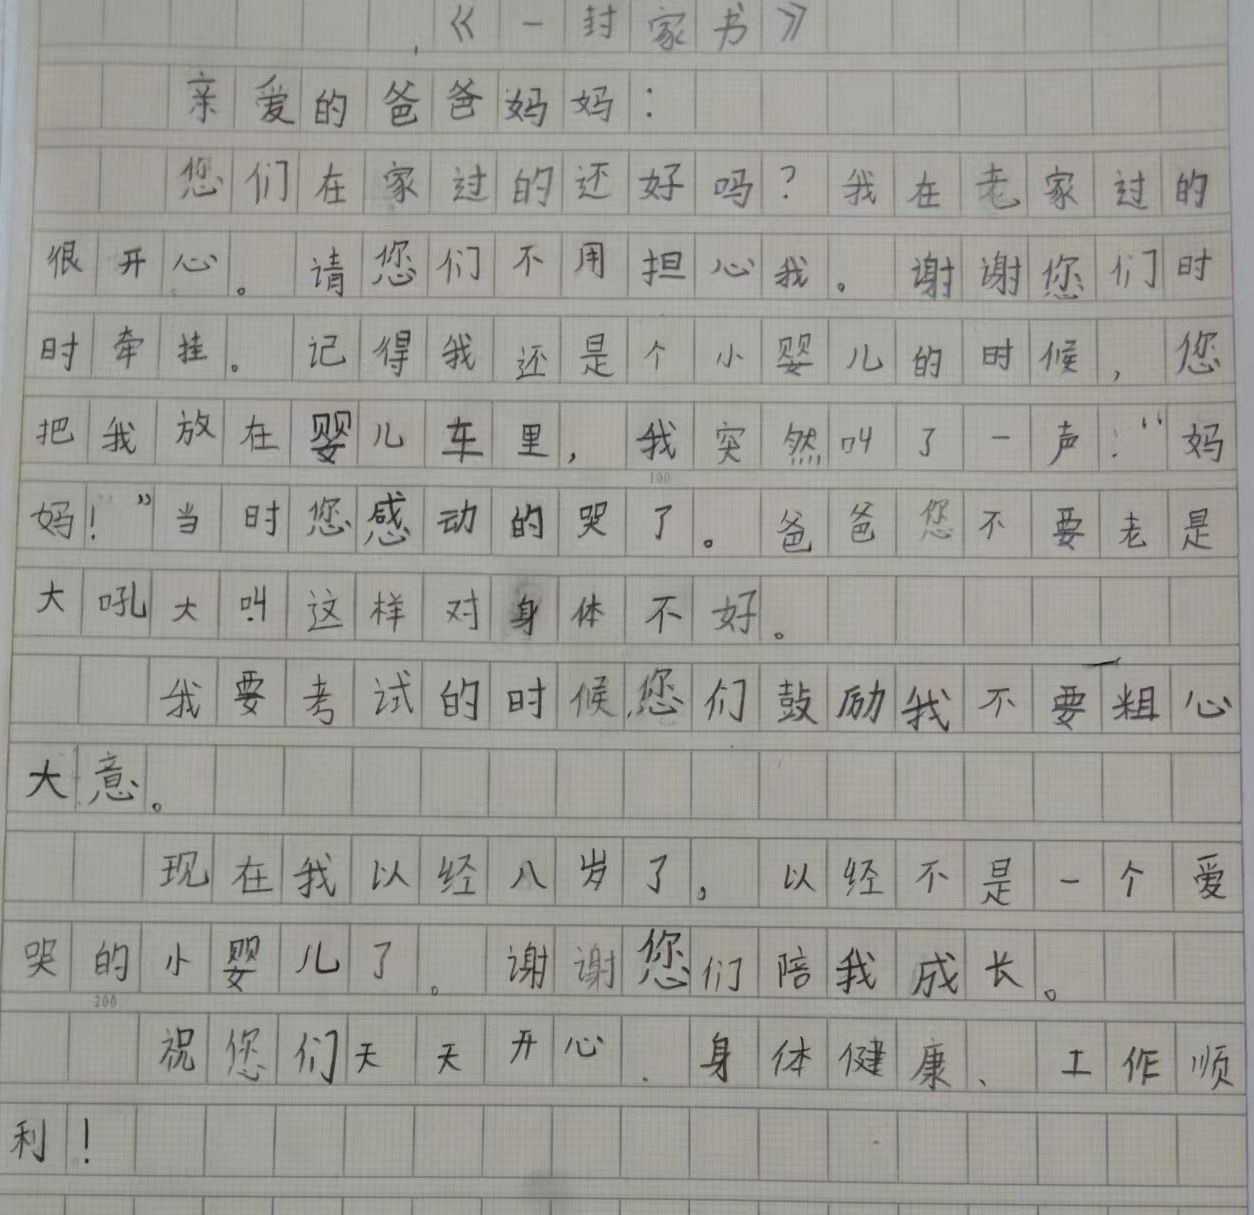 《一封家书》
亲爱的爸爸妈妈：
您们在家过的还好吗？我在老家过的
很开心。请您们不用担心我。谢谢您们时
时牵挂。记得我还是个小婴儿的时候，您
把我放在婴儿车里，我突然叫了一声：“妈
100
妈！”当时您感动的哭了。爸爸您不要老是
大吼大叫这样对身体不好。
我要考试的时候,您们鼓励我不要粗心
大意。
现在我以经八岁了，以经不是一个爱
哭的小婴儿了。谢谢您们陪我成长。
200
祝您们天天开心、身体健康、工作顺
利！